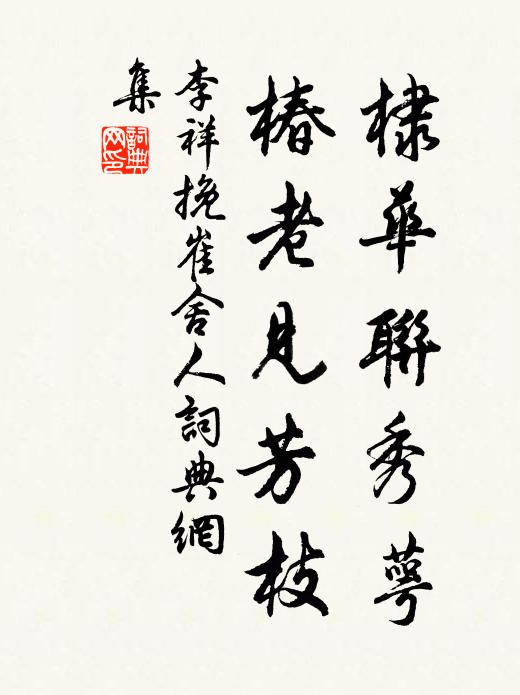 棣華聯秀萼
椿老見芳枝
李祥挽崔舍人詞典網
集
詞典網印